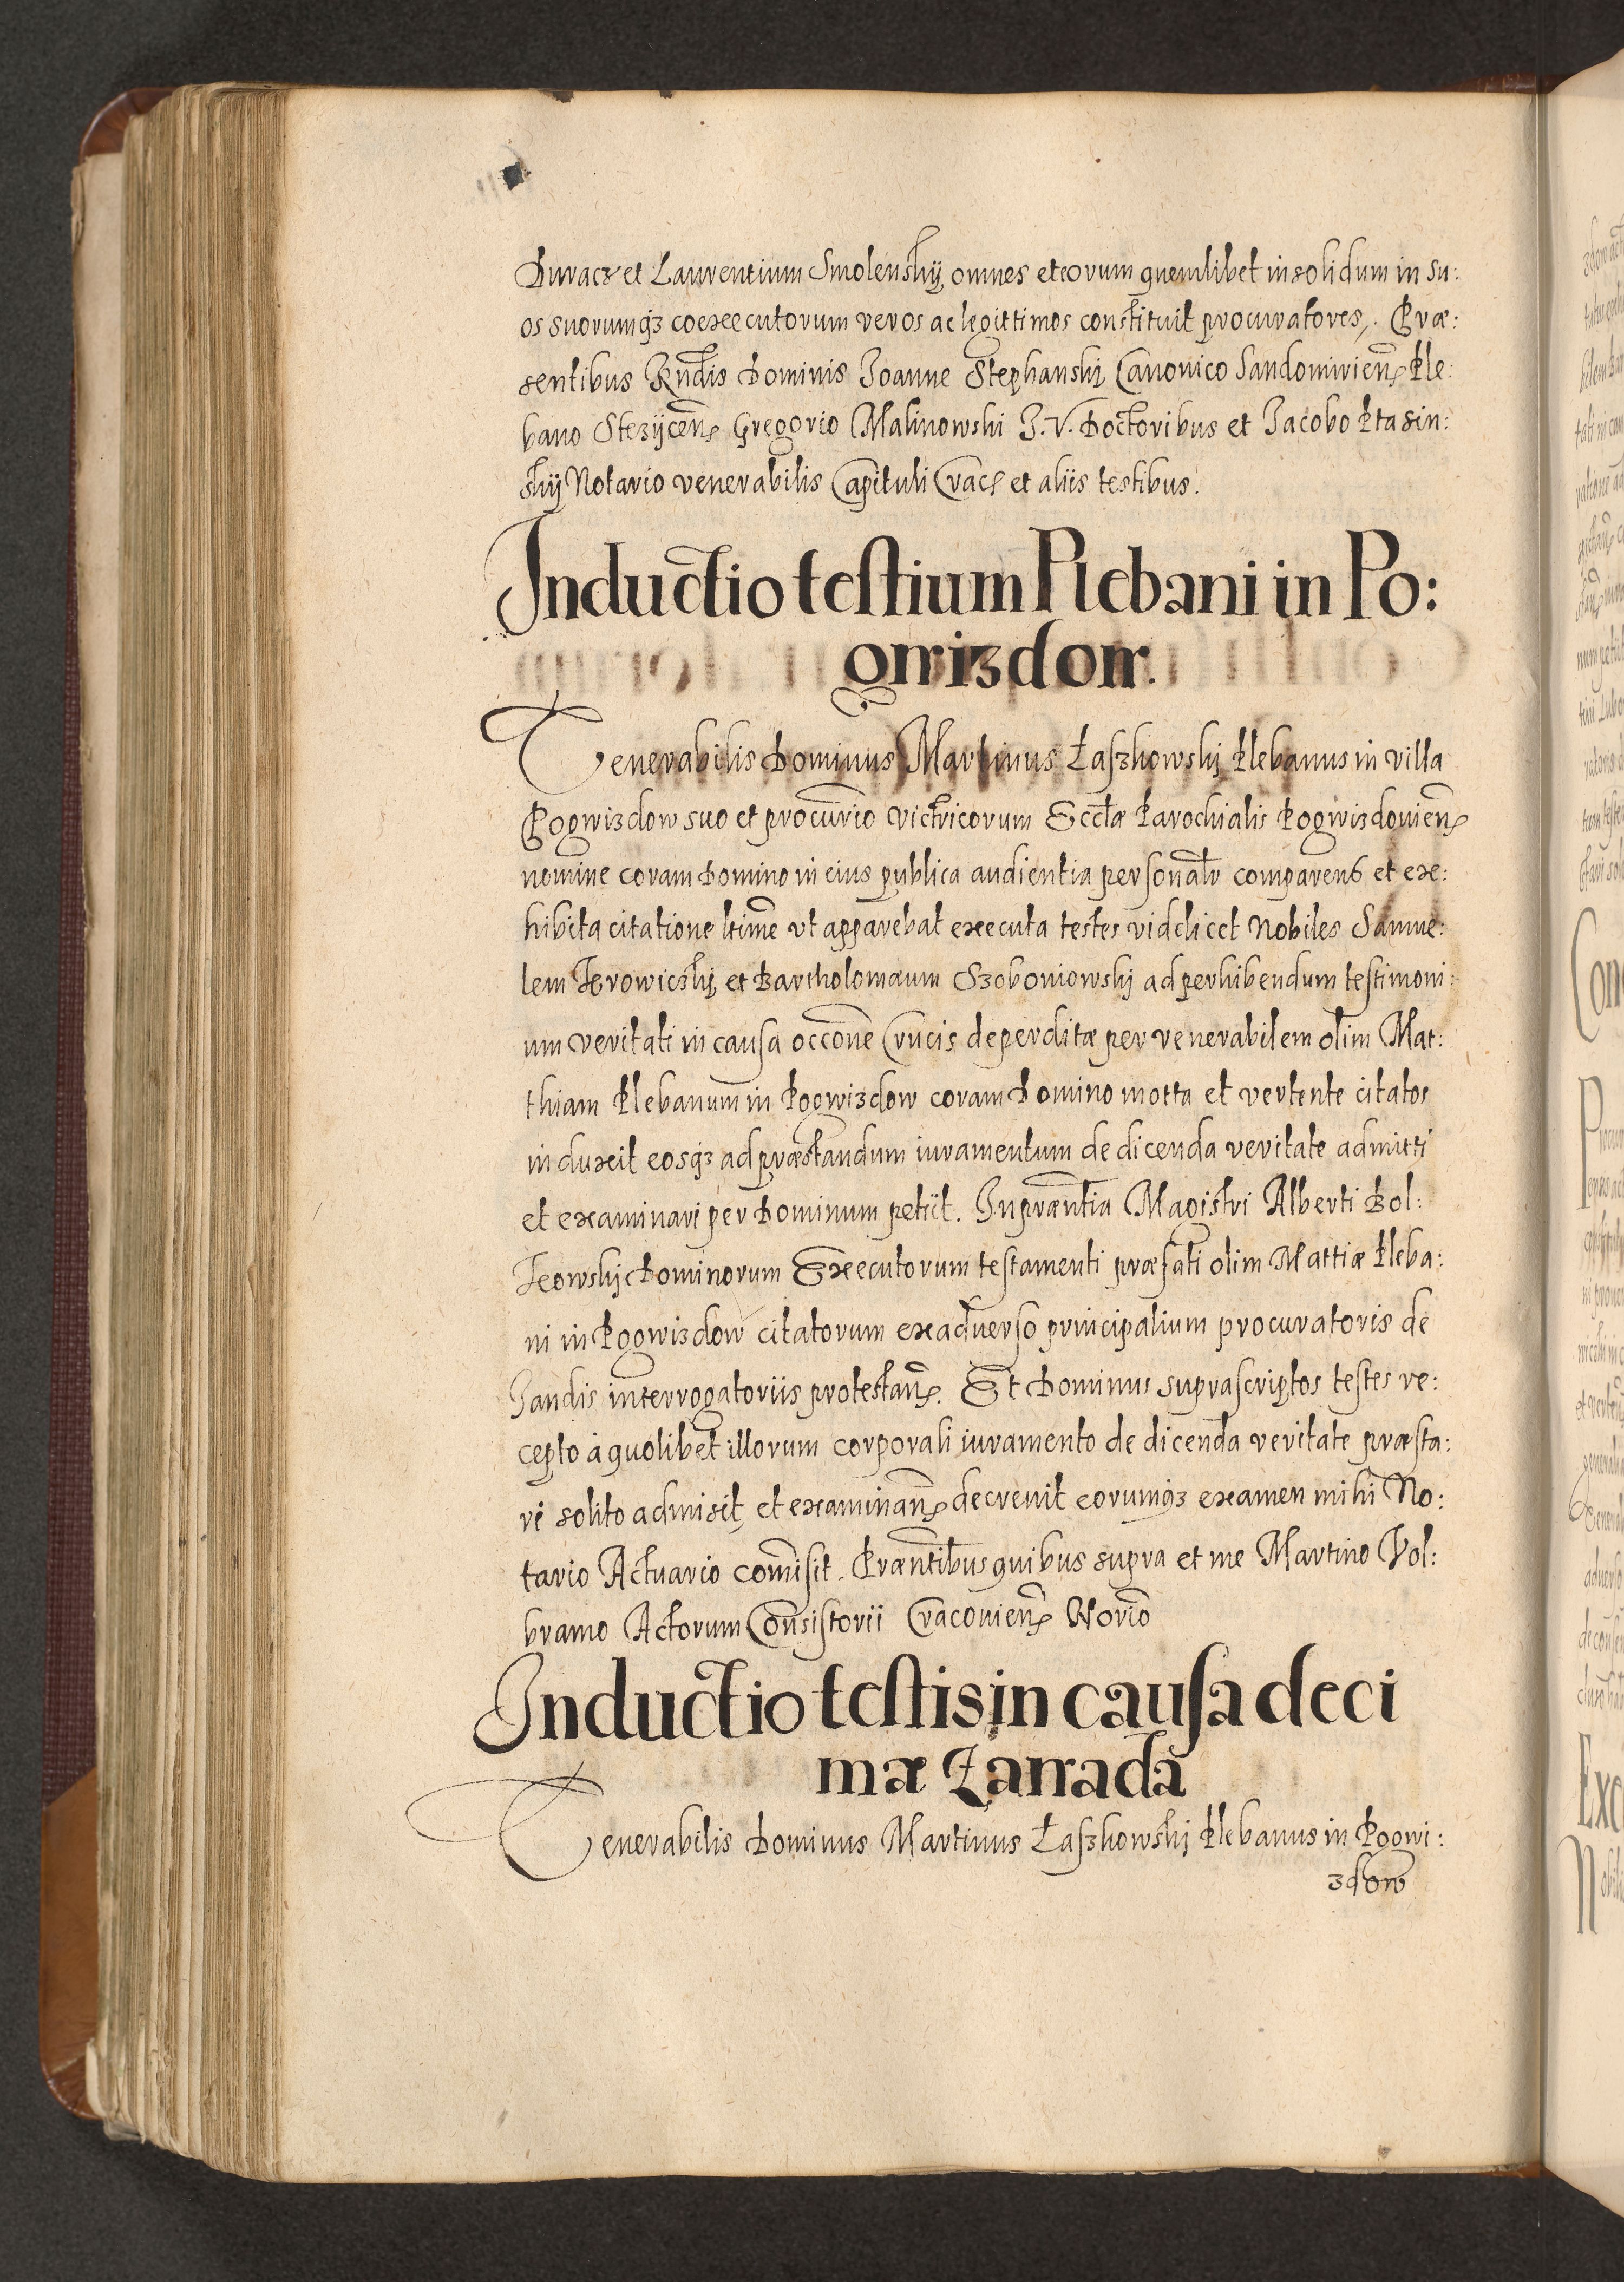 Duracz et Laurentium Smolenskij, omnes et eorum quemlibet in solidum in su:
os suorumq3 coexecutorum veros ac legittimos constituit procuratores. Præ:
sentibus Rndis Dominis Joanne Stephanskj Canonico Sandomirien Ple:
bano Stezycen Gregorio Malinowski J.V. Doctoribus et Jacobo Ptasin:
skij Notario venerabilis Capituli Crac et aliis testibus.
Inductio testium Plebani in Po:
gwizdow.
Venerabilis Dominus Martinus Łaszkowskj Plebanus in villa
Pogwizdow suo et procurio victricorum Ecctæ Parochialis Pogwizdouien
nomine coram Domino in eius publica audientia personalr comparens et exe:
hibita citatione ltime vt apparebat executa testes videlicet Nobiles Samue:
lem et Bartholomæum Szoboniowskj ad perhibendum testimoni:
um veritati in causa occone Crucis deperditæ per venerabilem olim Mat:
thiam Plebanum in Pogwizdow coram Domino motta et vertente citatos
induxit eosq3 ad præstandum iuramentum de dicenda veritate admitti
et examinari per Dominum petiit. In præntia Magistri Alberti Bol:
Dominorum Executorum testamenti præfati olim Mattiæ Pleba:
ni in Pogwizdow citatorum ex aduerso principalium procuratoris de
dandis interrogatoriis protestan. Et Dominus suprascriptos testes re:
cepto à quolibet illorum corporali iuramento de dicenda veritate præsta:
ri solito admisit, et examinan decreuit eorumq3 examen mihi No:
tario Actuario comisit. Præntibus quibus supra et me Martino Vol:
bramo Actorum Consistorii Cracouien Norio
Inductio testis in causa deci
mæ Zawada
Venerabilis Dominus Martinus Łaszkowskj Plebanus in Pogwi:
zdow